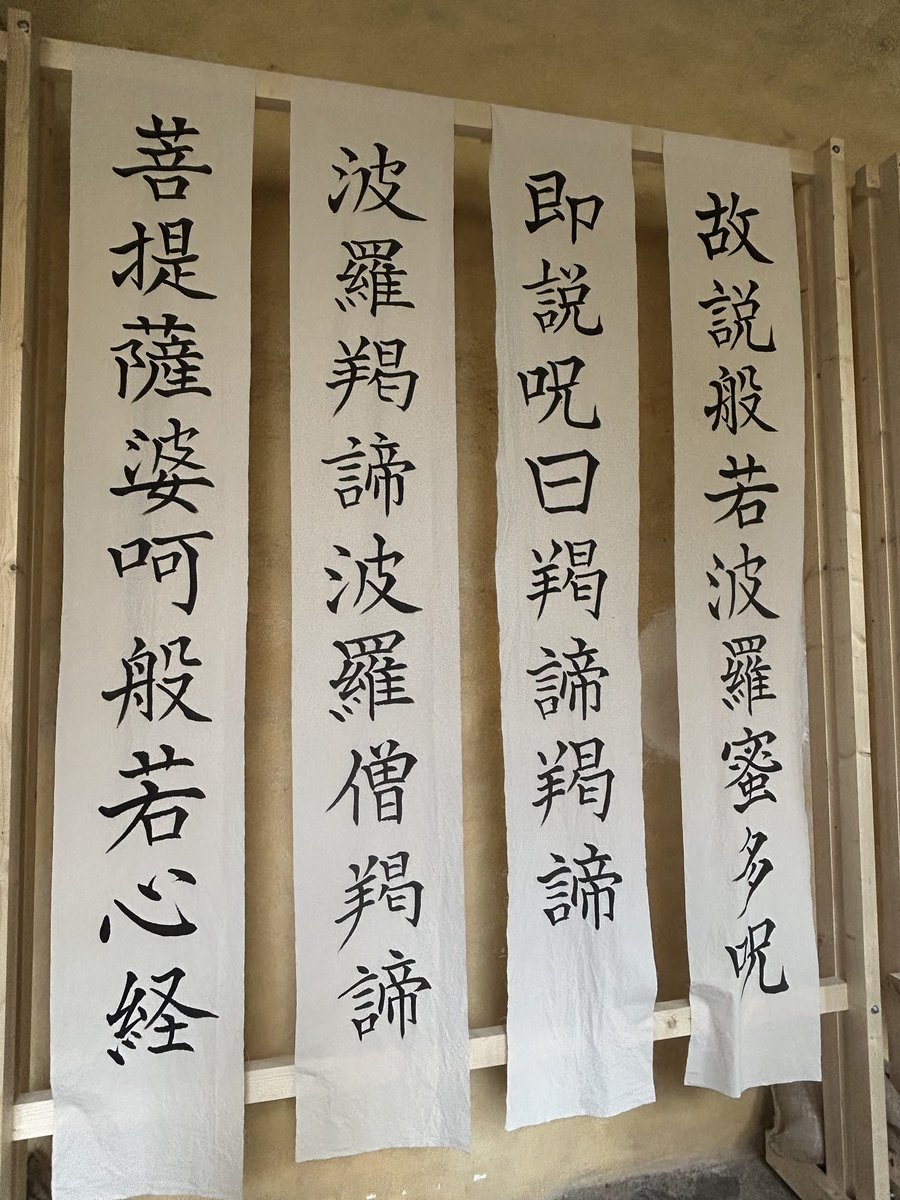 故説般若波羅蜜多呪
即説呪曰羯諦羯諦
波羅羯諦波羅僧羯諦
菩提薩婆呵般若心経